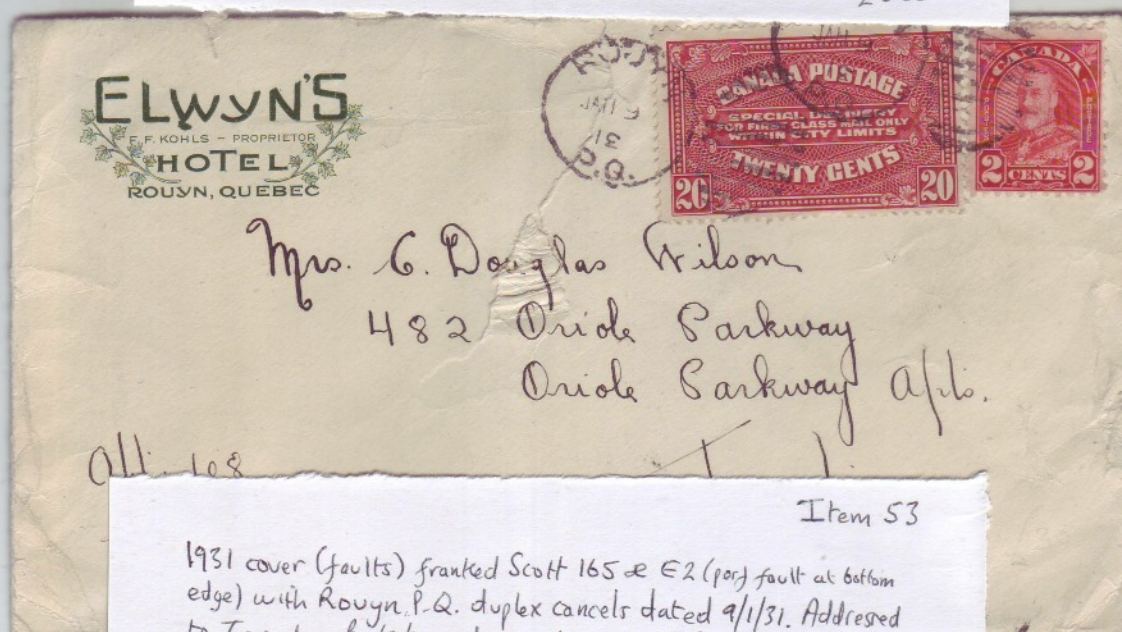 ELWYN'S
F.F. KOHLS - PROPRIETOR
HOTEL
ROUYN, QUEBEC
ROUY
JAN 9
31
P.Q.
CANADA POSTAGE
SPECIAL DELIVERY
FOR FIRST CLASS MAIL ONLY
WITHIN CITY LIMITS
TWENTY CENTS
20 20
CANADA
2 CENTS 2
Mrs. C. Douglas Wilson
482 Oriole Parkway
Oriole Parkway Apts.
108
Item 53
1931 cover (faults) franked Scott 165 & E2 (perf fault at bottom
edge) with Rouyn, P.Q. duplex cancels dated 9/1/31. Addressed
to